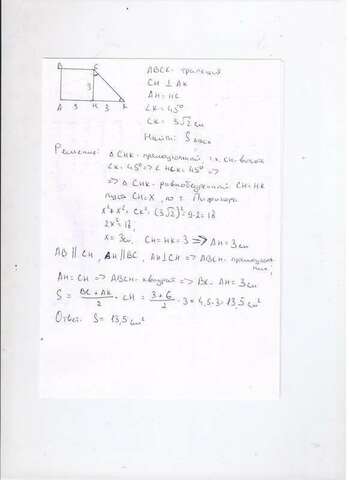 B C
3
A 3 H 3 K
ABCK - трапеция
CH ⊥ AK
AH = HK
∠K = 45°
CK = 3√2 см
Найти: S
Решение: Δ CHK - прямоугольный, т.к. CH - высота
∠K = 45° => ∠HCK = 45° =>
=> Δ CHK - равнобедренный CH = HK
пусть CH = X, по т. Пифагора
x² + x² = CK² = (3√2)² = 9·2 = 18
2x² = 18;
x = 3см, CH = HK = 3 => AH = 3см
AB || CH, AH || BC, AH ⊥ CH => ABCH -
AH = CH => ABCH - квадрат => BC = AH = 3см
S = BC + AK / 2 · CH = 3 + 6 / 2 · 3 = 4,5·3 = 13,5 см²
Ответ: S = 13,5 см²